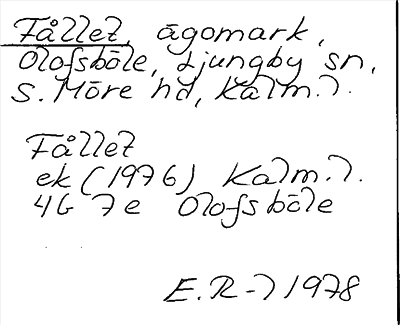 Fållet, ägomark,
Olofsböle, Ljungby sn,
S. Möre hd, Kalm. l.
Fållet
ek (1976) Kalm. l.
4G 7e Olofsböle
E.R-l 1978